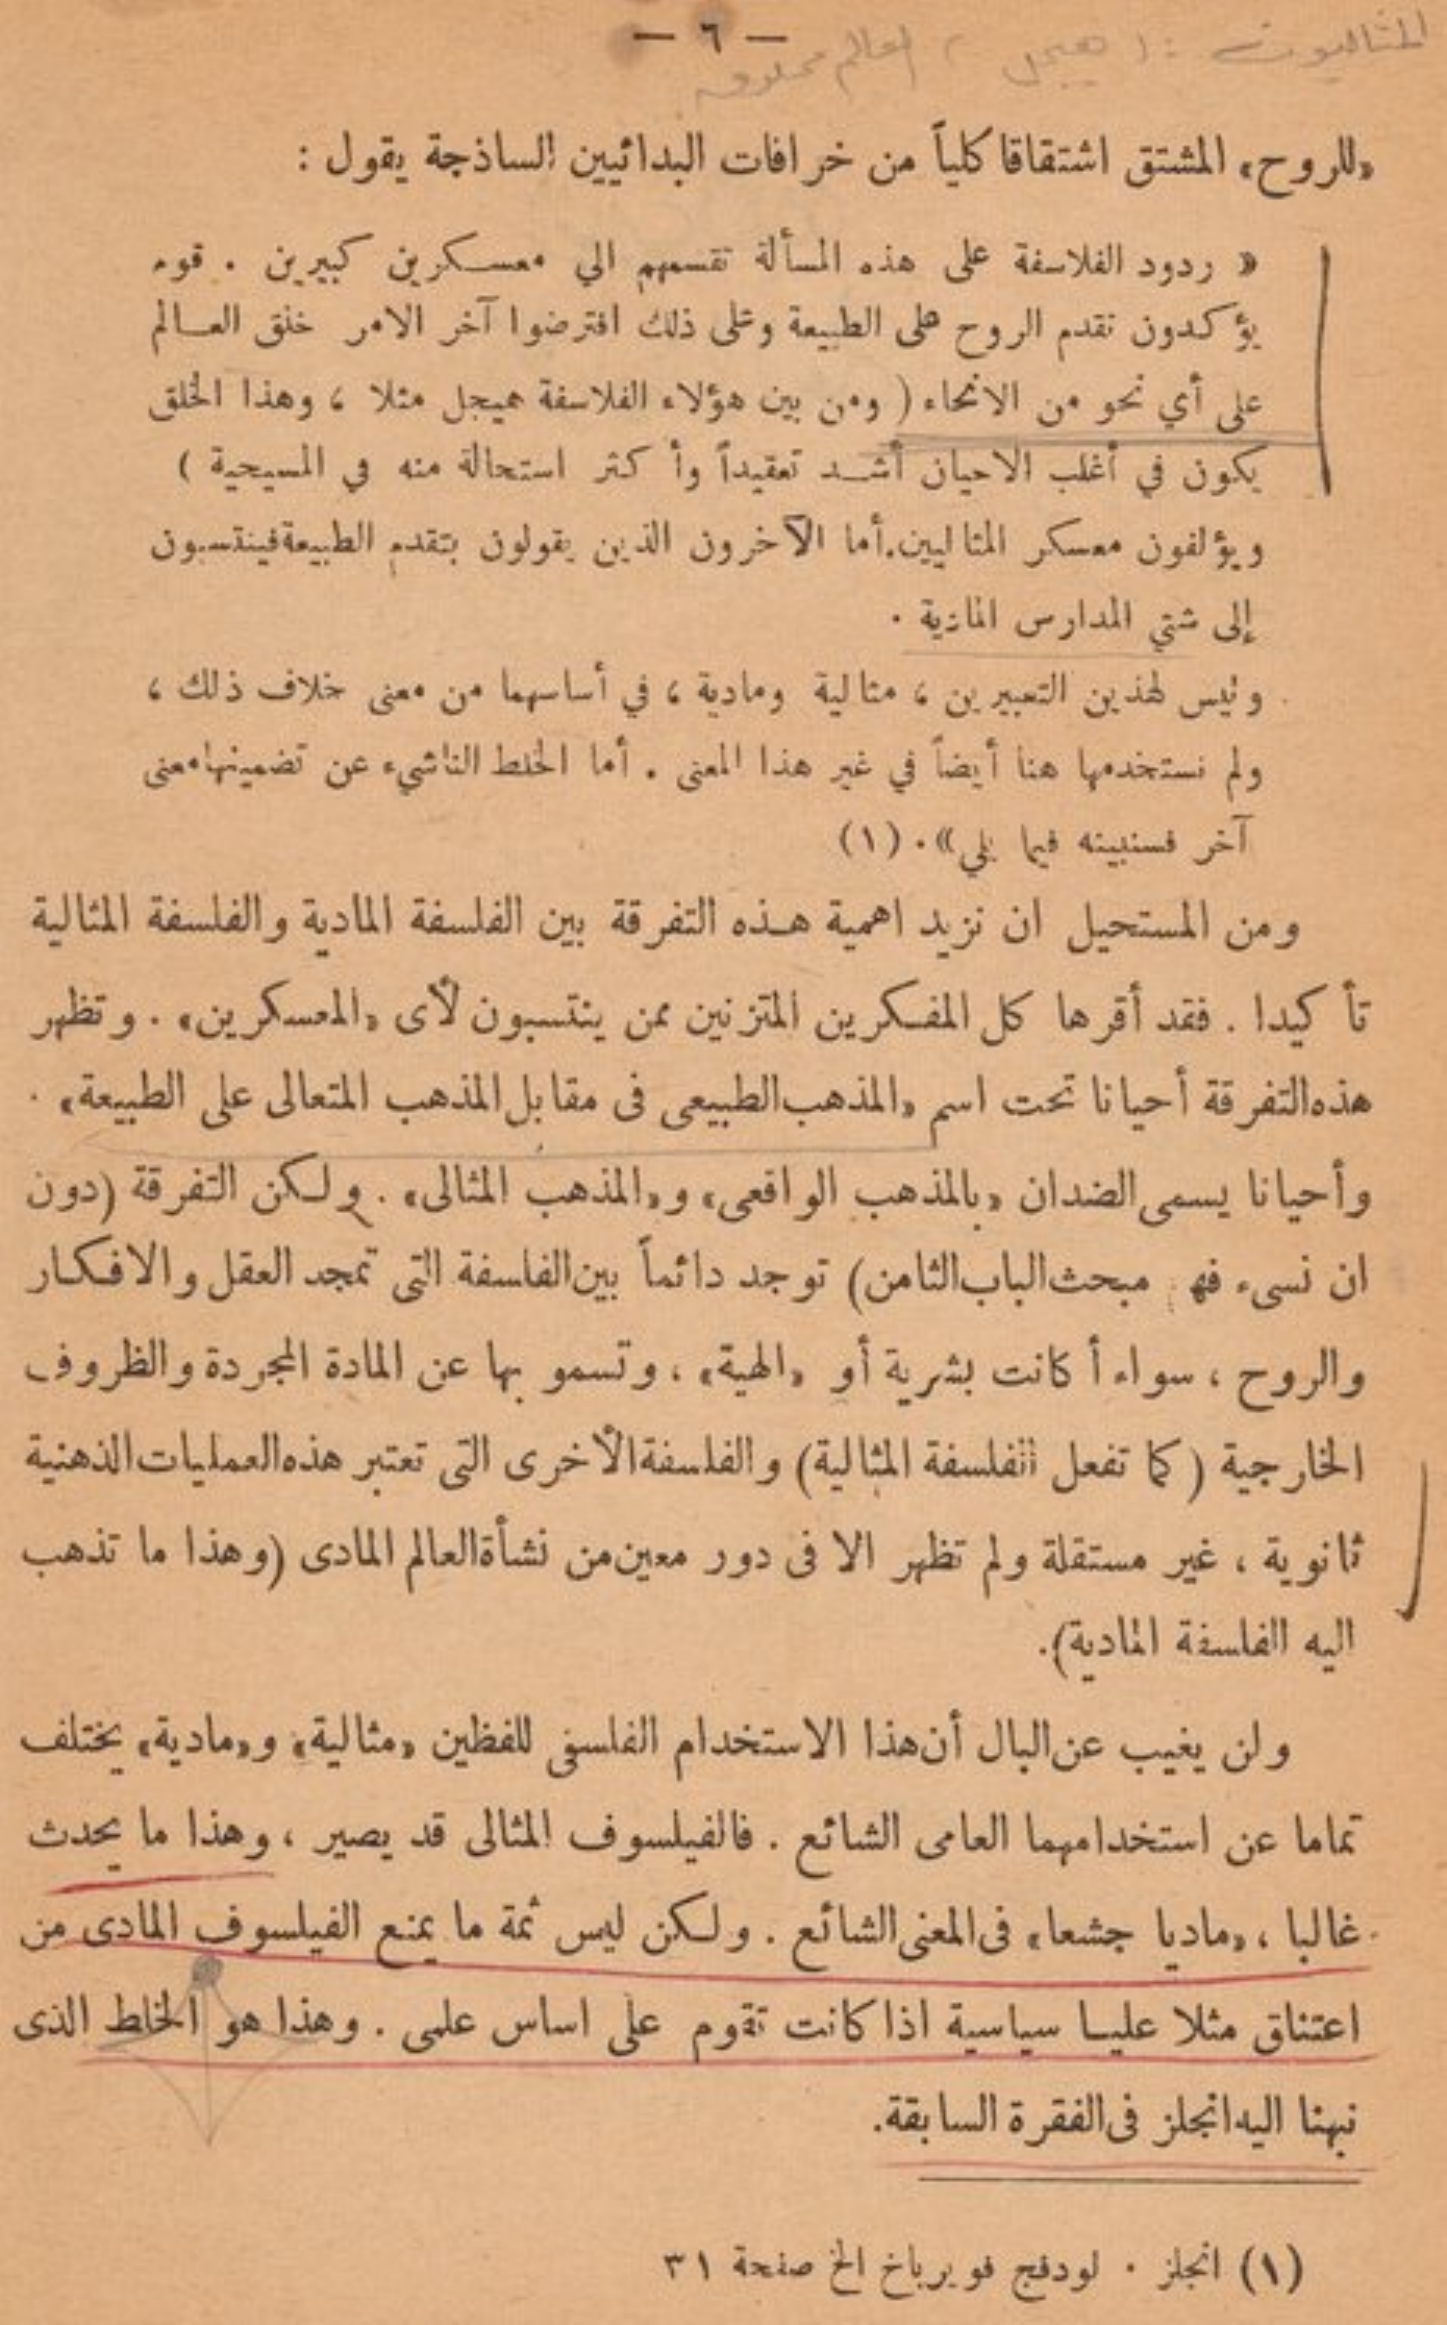 — ٦ —
المثاليون : ( هيجل ، العالم مخلوق
«للروح» المشتق اشتقاقا كلياً من خرافات البدائيين الساذجة يقول :
« ردود الفلاسفة على هذه المسألة تقسمهم الي معسكرين كبيرين . قوم
يؤكدون تقدم الروح على الطبيعة وعلى ذلك افترضوا آخر الامر خلق العالم
على أي نحو من الانحاء ( ومن بين هؤلاء الفلاسفة هيجل مثلا ، وهذا الخلق
يكون في أغلب الاحيان أشد تعقيداً وأكثر استحالة منه في المسيحية )
ويؤلفون معسكر المثاليين. أما الآخرون الذين يقولون بتقدم الطبيعة فينتسبون
إلى شتي المدارس المادية .
وليس لهذين التعبيرين ، مثالية ومادية ، في أساسهما من معنى خلاف ذلك ،
ولم نستخدمها هنا أيضاً في غير هذا المعنى . أما الخلط الناشيء عن تضمينها معنى
آخر فسنبينه فيما يلي» . (١)
ومن المستحيل ان نزيد اهمية هذه التفرقة بين الفلسفة المادية والفلسفة المثالية
تأكيدا . فقد أقرها كل المفكرين المتزنين ممن ينتسبون لأى «المعسكرين» . وتظهر
هذه التفرقة أحيانا تحت اسم «المذهب الطبيعى فى مقابل المذهب المتعالى على الطبيعة» .
وأحيانا يسمى الضدان «بالمذهب الواقعى» و«المذهب المثالى» . ولكن التفرقة (دون
ان نسىء فهم مبحث الباب الثامن) توجد دائماً بين الفلسفة التى تمجد العقل والافكار
والروح ، سواء أكانت بشرية أو «الهية» ، وتسمو بها عن المادة المجردة والظروف
الخارجية (كما تفعل الفلسفة المثالية) والفلسفة الأخرى التى تعتبر هذه العمليات الذهنية
ثانوية ، غير مستقلة ولم تظهر الا فى دور معين من نشأة العالم المادى (وهذا ما تذهب
اليه الفلسفة المادية).
ولن يغيب عن البال أن هذا الاستخدام الفلسفى للفظين «مثالية» و«مادية» يختلف
تماما عن استخدامهما العامى الشائع . فالفيلسوف المثالى قد يصير ، وهذا ما يحدث
غالبا ، «ماديا جشعا» فى المعنى الشائع . ولكن ليس ثمة ما يمنع الفيلسوف المادى من
اعتناق مثلا عليا سياسية اذا كانت تقوم على اساس علمى . وهذا هو الخلط الذى
نبهنا اليه انجلز فى الفقرة السابقة.
(١) انجلز . لودفج فويرباخ الخ صفحة ٣١